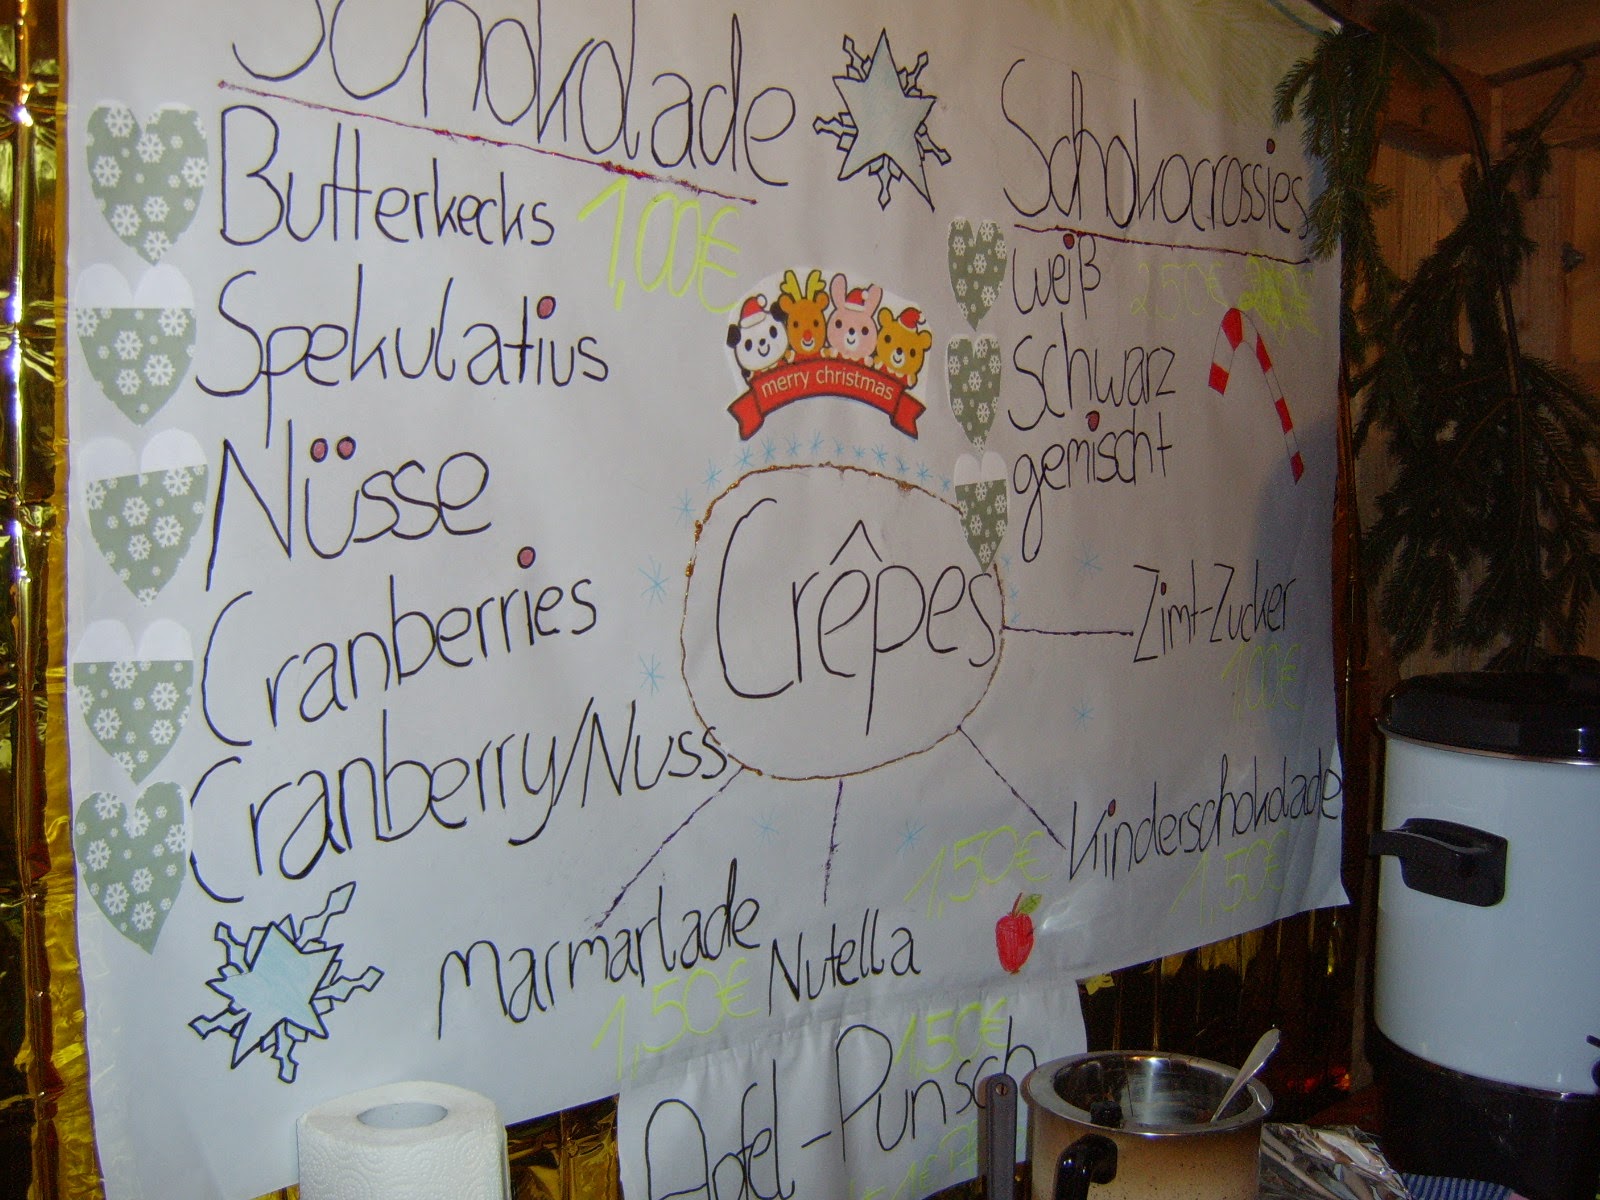 Schokolade
Butterkecks 1,00€
Spekulatius
Nüsse
Cranberries
Cranberry/Nuss
merry christmas
Schokocrossies
weiß 2,50€
schwarz
gemischt
Crêpes
Zimt-Zucker
1,00€
Kinderschokolade
1,50€
1,50€
Marmarlade
1,50€
Nutella
1,50€
Apfel-Punsch